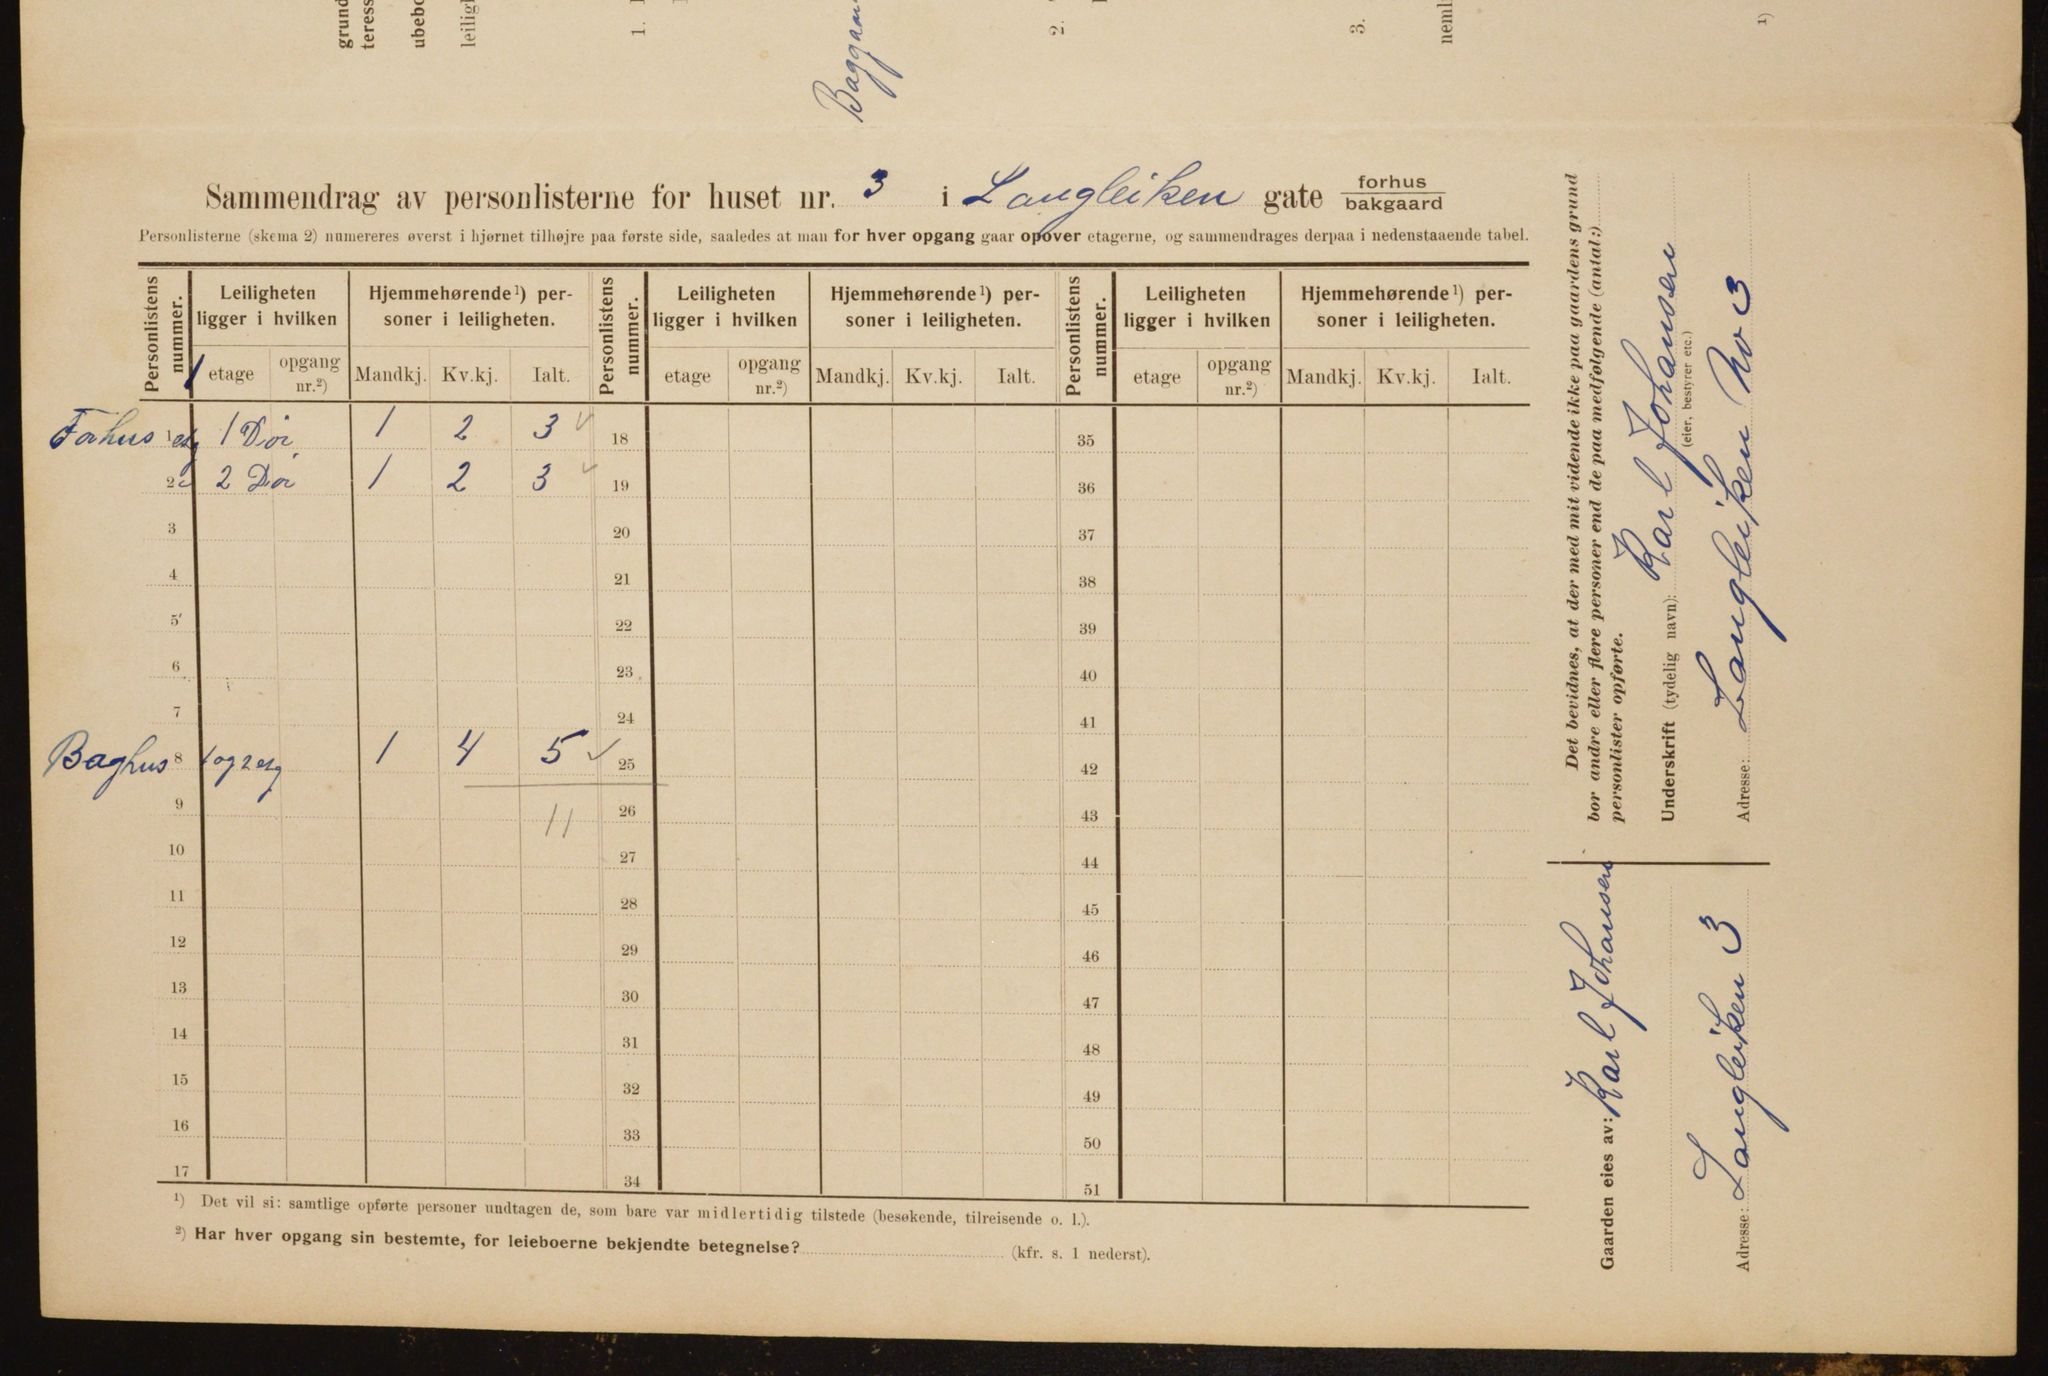 grund
teress
ubebo
leiligh
1.
Baggaar
2.
3.
neml
1)
Sammendrag av personlisterne for huset nr. 3 i Langleiken gate forhus bakgaard
Personlisterne (skema 2) numereres øverst i hjørnet tilhøjre paa første side, saaledes at man for hver opgang gaar opover etagerne, og sammendrages derpaa i nedenstaaende tabel.
Personlistens nummer. Leiligheten ligger i hvilken Hjemmehørende 1) personer i leiligheten. Personlistens nummer. Leiligheten ligger i hvilken Hjemmehørende 1) personer i leiligheten. Personlistens nummer. Leiligheten ligger i hvilken Hjemmehørende 1) personer i leiligheten.
1 etage opgang nr.2) Mandkj. Kv.kj. Ialt. etage opgang nr.2) Mandkj. Kv.kj. Ialt. etage opgang nr.2) Mandkj. Kv.kj. Ialt.
Forhus 1 etg 1 Dør 1 2 3 18 35
2 2 Dør 1 2 3 19 36
3 20 37
4 21 38
5 22 39
6 23 40
7 24 41
Baghus 8 1 og 2 etg 1 4 5 25 42
9 11 26 43
10 27 44
11 28 45
12 29 46
13 30 47
14 31 48
15 32 49
16 33 50
17 34 51
1) Det vil si: samtlige opførte personer undtagen de, som bare var midlertidig tilstede (besøkende, tilreisende o. l.).
2) Har hver opgang sin bestemte, for leieboerne bekjendte betegnelse? (kfr. s. 1 nederst).
Det bevidnes, at der med mit vidende ikke paa gaardens grund
bor andre eller flere personer end de paa medfølgende (antal:)
personlister opførte.
Underskrift (tydelig navn): Karl Johansen
(eier, bestyrer etc.)
Adresse: Langleiken No 3
Gaarden eies av: Karl Johansen
Adresse: Langleiken 3